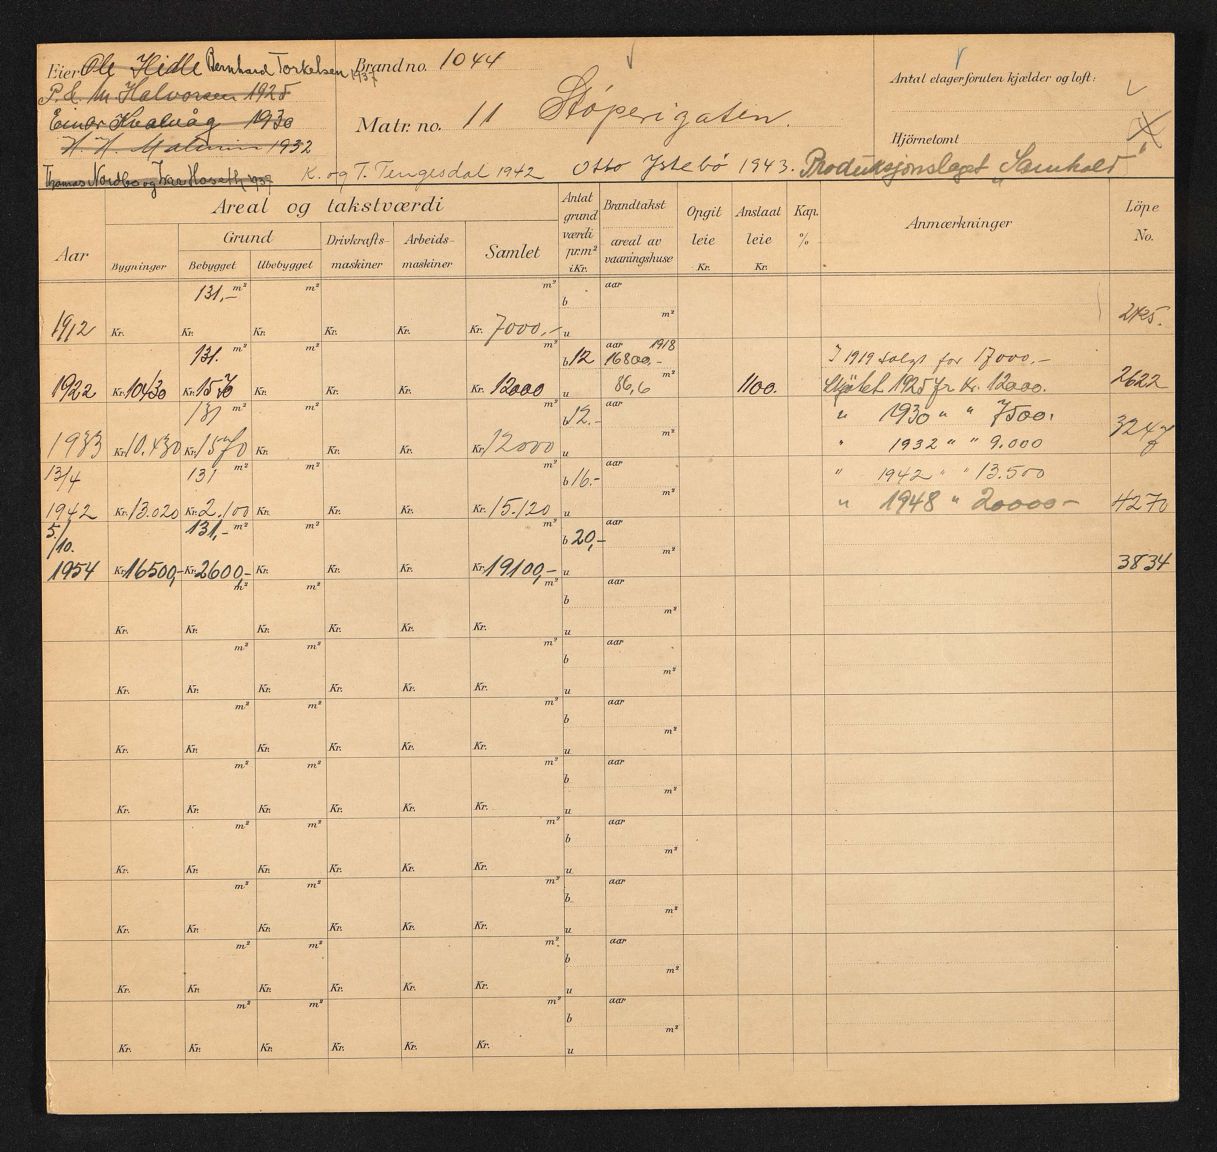 Eier Ole Hidle Bernhard Torkelsen 1937 Brand no. 1044
Antal etager foruten kjælder og loft:
P. E. M. Halvorsen 1925
Einar Kvalvåg 1930
Matr. no. 11 Støperigaten.
Hjörnetomt
H. H. Malmin 1932
Thomas Nordbø og Ivar Haseth 1939 K. og T. Tengesdal 1942 Otto Ystebø 1943. Produksjonslaget "Samhold"
Areal og takstværdi
Aar
Bygninger
Grund
Bebygget
Ubebygget
Drivkrafts-maskiner
Arbeids-maskiner
Samlet
Antal grund værdi pr. m² i Kr.
Brandtakst
areal av vaaningshuse
Opgit leie Kr.
Anslaat leie Kr.
Kap. %
Anmærkninger
Löpe No.
131,- m² m² m² b aar
1912 Kr. Kr. Kr. Kr. Kr. Kr. 7000,- u m² 245.
131. m² m² m² b 12 aar 1918 16800,- I 1919 solgt for 17000.-
1922 Kr. 10430 Kr. 1570 Kr. Kr. Kr. Kr. 12000 u 86,6 m² 1100. Skjötet 1925 for Kr. 12000. 2622
131 m² m² m² b 12.- aar " 1930 " " 7500.
1933 Kr. 10.430 Kr. 1570 Kr. Kr. Kr. Kr. 12000 u m² " 1932 " " 9.000 3247
13/4 131 m² m² m² b 16.- aar " 1942 " " 13.500
1942 Kr. 13.020 Kr. 2.100 Kr. Kr. Kr. Kr. 15.120 u m² " 1948 " 20000- 4270
5/10. 131,- m² m² m² b 20,- aar
1954 Kr. 16500,- Kr. 2600,- Kr. Kr. Kr. Kr. 19100,- u m² 3834
m² m² m² b aar
Kr. Kr. Kr. Kr. Kr. Kr. u m²
m² m² m² b aar
Kr. Kr. Kr. Kr. Kr. Kr. u m²
m² m² m² b aar
Kr. Kr. Kr. Kr. Kr. Kr. u m²
m² m² m² b aar
Kr. Kr. Kr. Kr. Kr. Kr. u m²
m² m² m² b aar
Kr. Kr. Kr. Kr. Kr. Kr. u m²
m² m² m² b aar
Kr. Kr. Kr. Kr. Kr. Kr. u m²
m² m² m² b aar
Kr. Kr. Kr. Kr. Kr. Kr. u m²
m² m² m² b aar
Kr. Kr. Kr. Kr. Kr. Kr. u m²